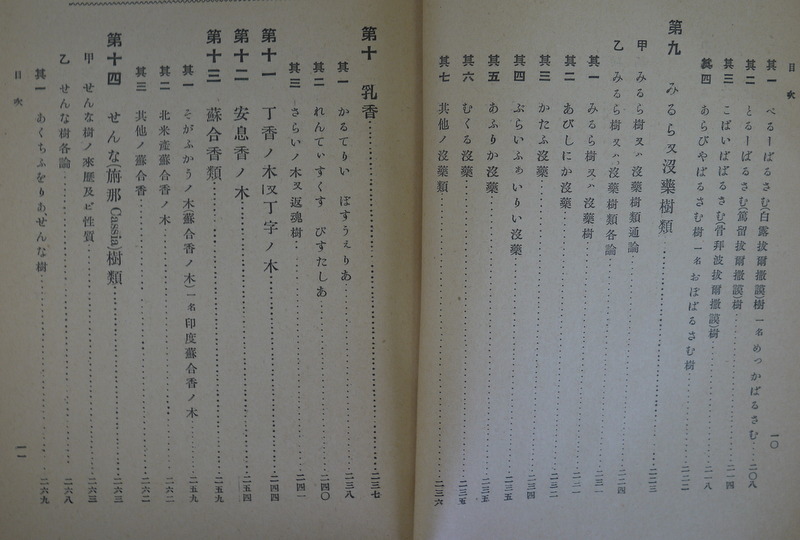 目次
一〇
其一 べるーばるさむ(白露拔爾撒謨)樹 一名 めっかばるさむ 二〇八
其二 とるーばるさむ(篤留拔爾撒謨)樹 二一四
其三 こばいばばるさむ(骨拜波拔爾撒謨)樹
其四 あらびやばるさむ樹 一名 おぽばるさむ樹 二一八
第九 みるら又沒藥樹類 二二二
甲 みるら樹又ハ沒藥樹類通論 二二三
乙 みるら樹又ハ沒藥樹類各論 二二四
其一 みるら樹又ハ沒藥樹 二三一
其二 あびしにか沒藥 二三一
其三 かたふ沒藥 二三四
其四 ぷらいふぁいりい沒藥 二三五
其五 あふりか沒藥 二三五
其六 むくる沒藥 二三五
其七 其他ノ沒藥類 二三六
第十 乳香 二三七
其一 かるてりい ぼすうぇりあ 二三八
其二 れんてぃすくす ぴすたしあ 二四〇
其三 さらいノ木又返魂樹 二四一
第十一 丁香ノ木又丁字ノ木 二四四
第十二 安息香ノ木 二五四
第十三 蘇合香類 二五九
其一 そがふかうノ木(蘇合香ノ木)一名 印度蘇合香ノ木 二五九
其二 北米產蘇合香ノ木 二六二
其三 其他ノ蘇合香 二六二
第十四 せんな(旃那 Cassia)樹類 二六三
甲 せんな樹ノ來歷及ビ性質 二六三
乙 せんな樹各論 二六八
其一 あくちふをりあせんな樹 二六九
目次
一一